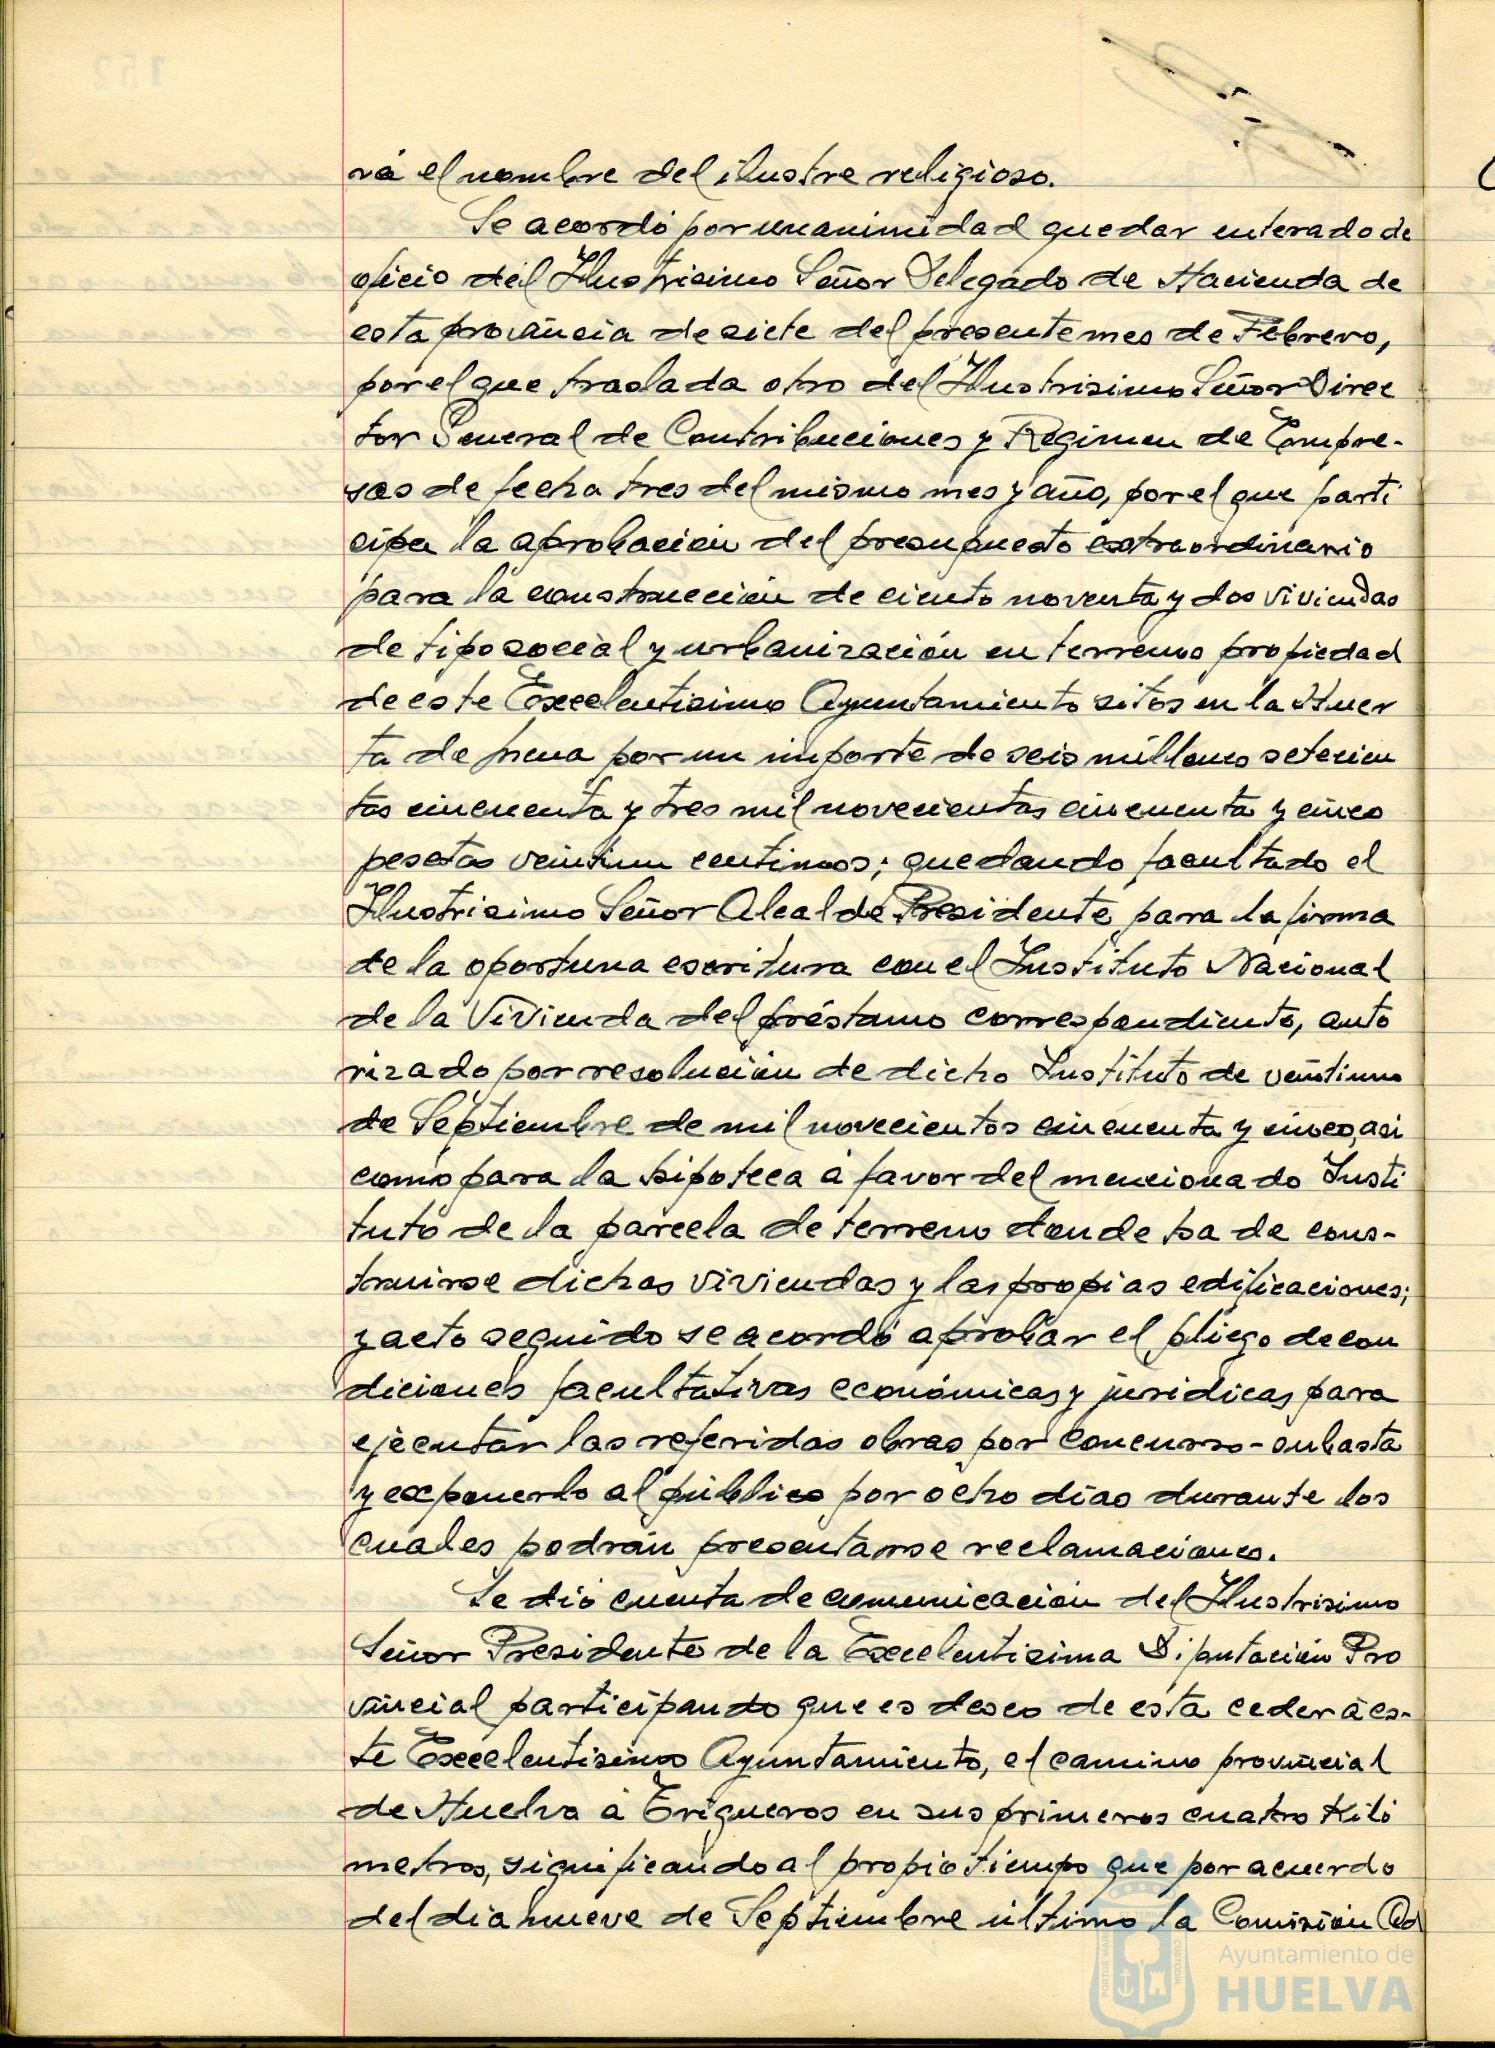 rá el nombre del ilustre religioso.
Se acordó por unanimidad quedar enterado de
oficio del Ilustrisimo Señor Delegado de Hacienda de
esta provincia de siete del presente mes de Febrero,
por el que traslada otro del Ilustrisimo Señor Direc
tor General de Contribuciones y Regimen de Empre-
sas de fecha tres del mismo mes y año, por el que parti
cipa la aprobación del presupuesto extraordinario
para la construcción de ciento noventa y dos viviendas
de tipo social y urbanización en terrenos propiedad
de este Excelentisimo Ayuntamiento sitos en la Huer
ta de mena por un importe de seis millones setecien
tos cincuenta y tres mil novecientas cincuenta y cinco
pesetas veintiun centimos; quedando facultado el
Ilustrisimo Señor Alcalde Presidente para la firma
de la oportuna escritura con el Instituto Nacional
de la Vivienda del préstamo correspondiente, auto
rizado por resolución de dicho Instituto de veintiuno
de Septiembre de mil novecientos cincuenta y cinco, asi
como para la hipoteca á favor del mencionado Insti
tuto de la parcela de terreno donde ha de cons-
truirse dichas viviendas y las propias edificaciones;
y acto seguido se acordó aprobar el pliego de con
diciones facultativas económicas y juridicas para
ejecutar las referidas obras por concurso-subasta
y exponerlo al público por ocho dias durante los
cuales podrán presentarse reclamaciones.
Se dió cuenta de comunicación del Ilustrisimo
Señor Presidente de la Excelentisima Diputación Pro
vincial participando que es deseo de esta ceder á es-
te Excelentisimo Ayuntamiento, el camino provincial
de Huelva á Trigueros en sus primeros cuatro Kiló
metros, significando al propio tiempo que por acuerdo
del dia nueve de Septiembre último la Comisión Ad
Ayuntamiento de
HUELVA